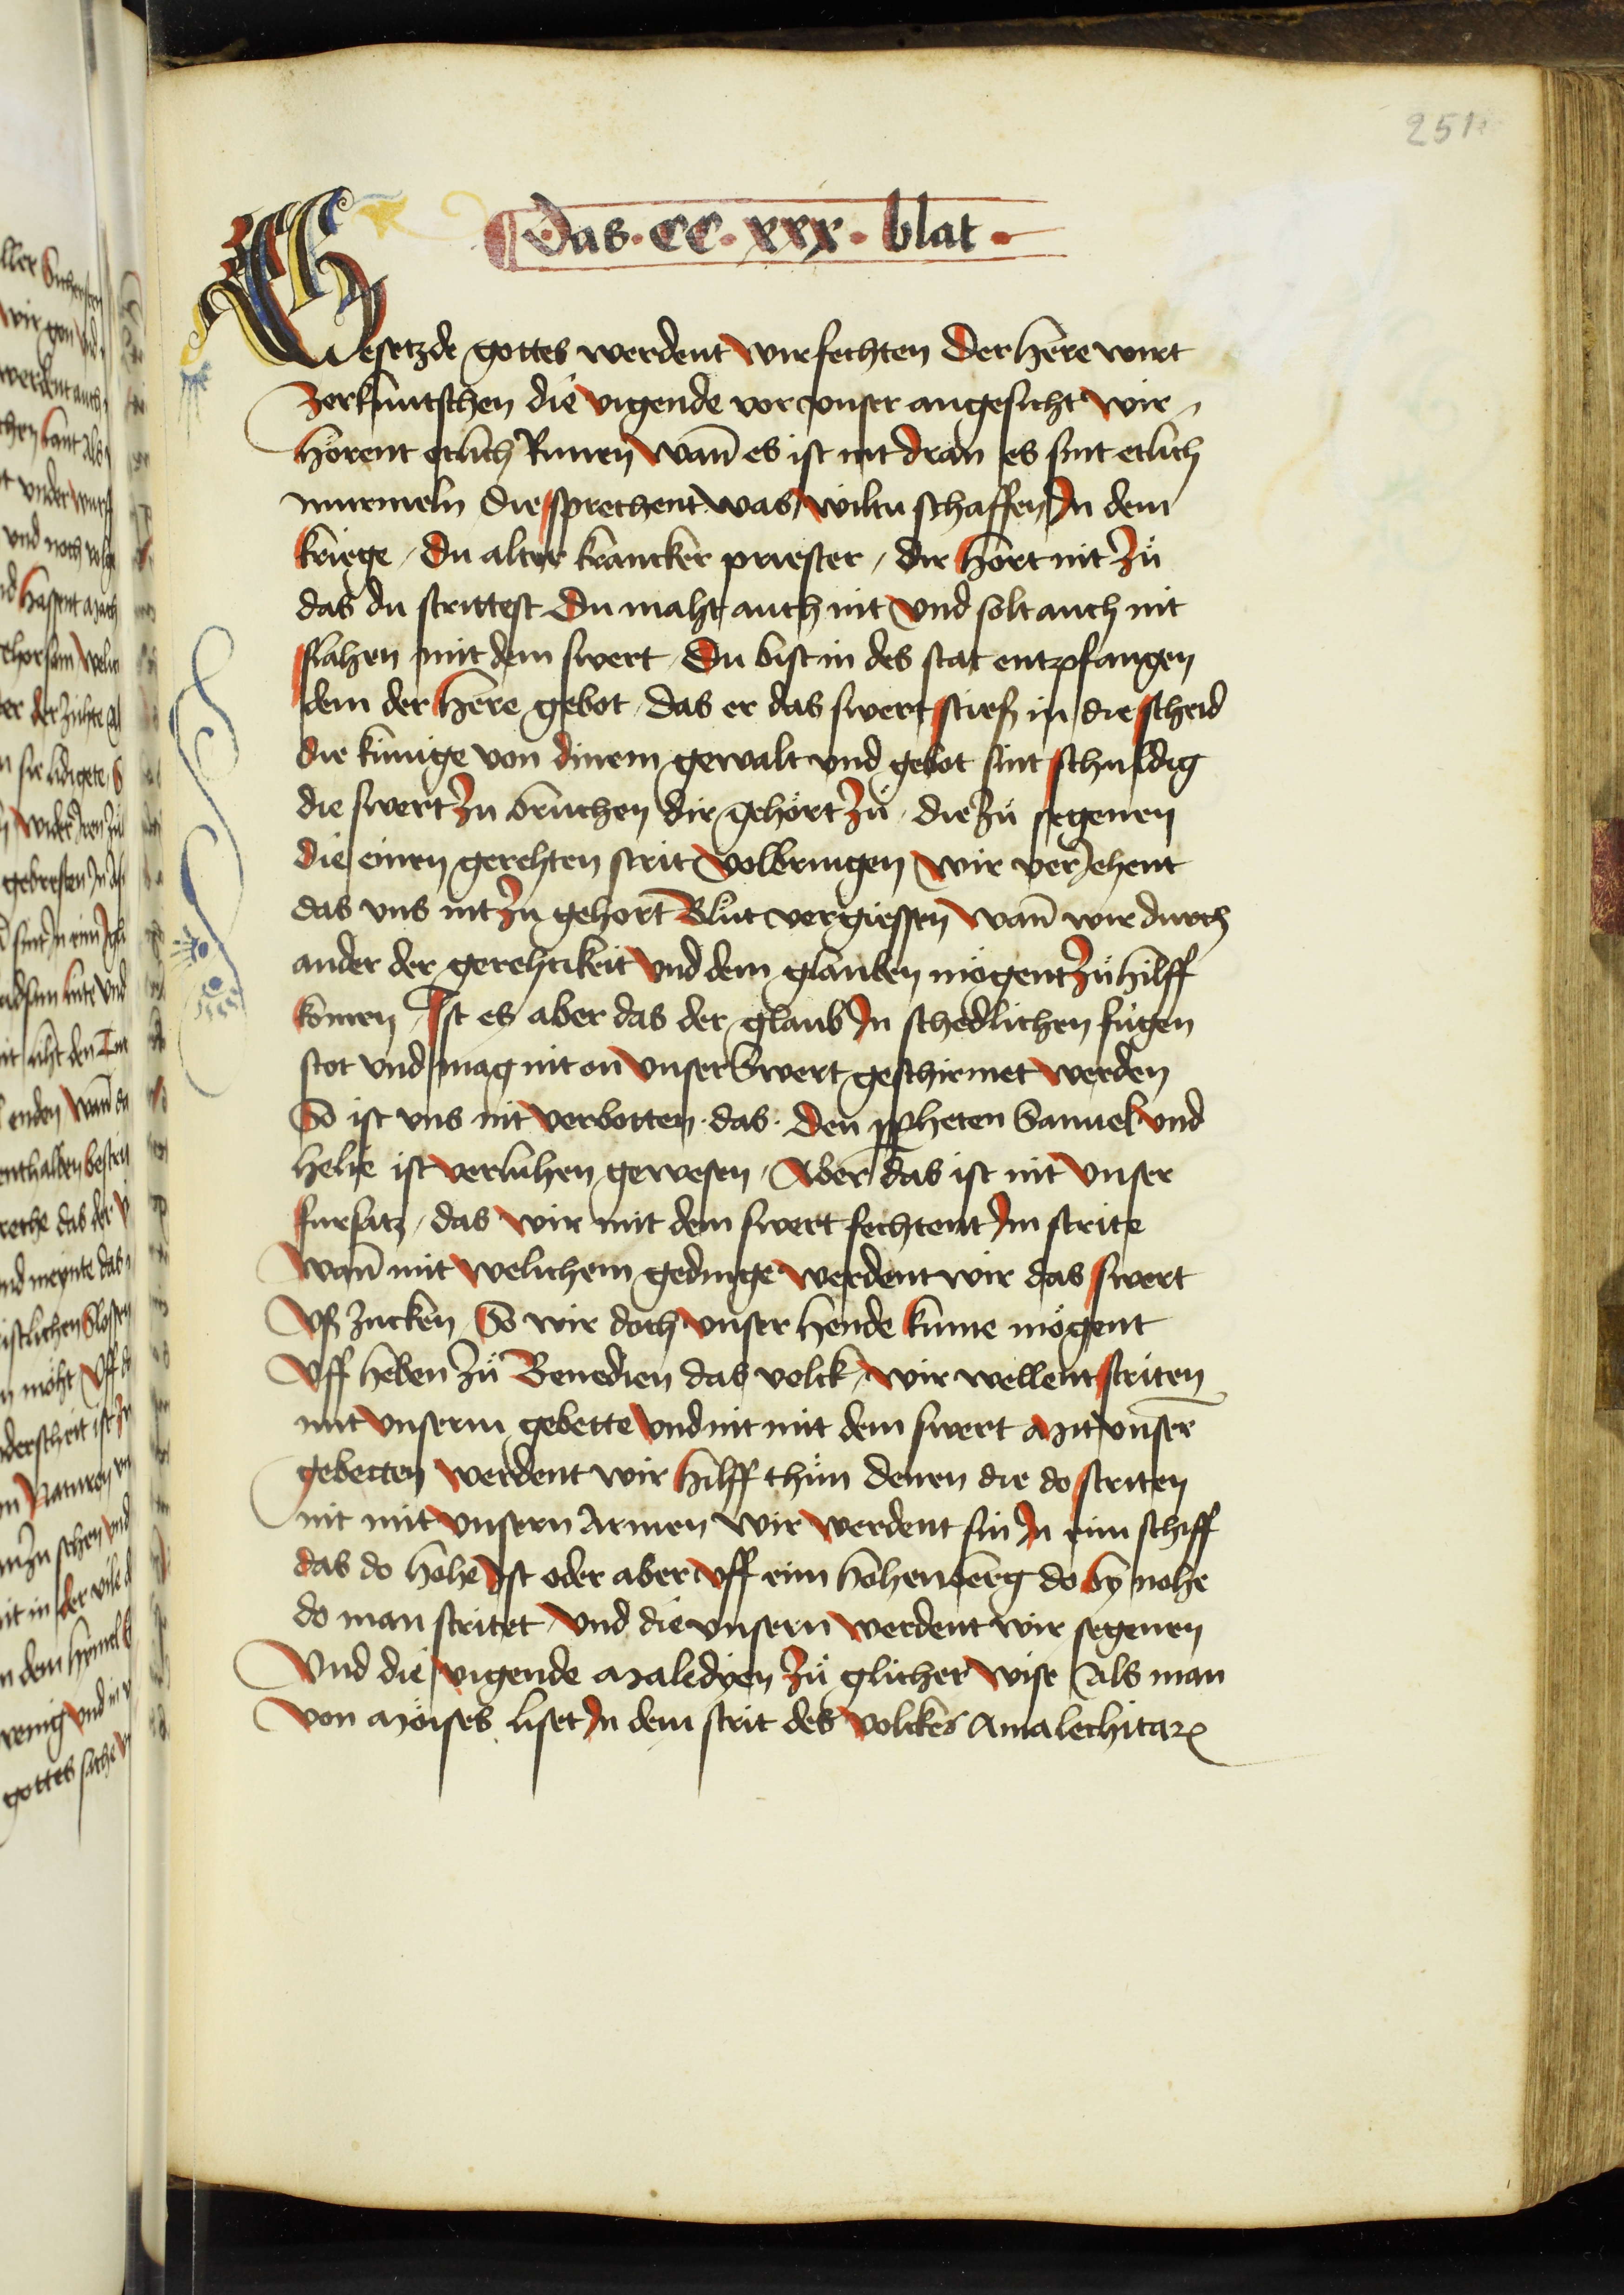 251
¶ das · CC · xxx · blat ·
Gesetzde gottes werdent wir fechten Der herre wirt
Zerknutschen die vigende vor vnser angesicht Wir
hörent etlich Runen Wann̄ es ist nit dran es sint etlich
murmeln die sprechent was wiltu schaffen In dem
kriege / Du alter krancker priester / dir hört nit Zů
das du strittest Du maht auch nit Vnd solt auch nit
slahen mit dem swert Du bist in des stat entpfangen
dem der herre gebot / das er das swert stiesz in die scheid
die künige von dinem gewalt vnd gebot sint schuldig
die swert Zu bruchen dir gehört Zů / die Zů segenen
die einen gerehten strit Volbringen Wir verJehent
das vns nit Zu gehort Blůt vergiessen Wann̄ wir durch
ander der gerehtikeit Vnd dem glauben mögent Zů hilff
komen / Ist es aber das der glaub In schedlichen fůgen
stot vnd mag nit on Vnser Swert geschirmet Werden
So ist vns nit Verbotten · das · Den ꝓpheten Samuel Vnd
helye ist Verluhen gewesen / Aber das ist nit Vnser
fursatz / das Wir mit dem swert fechtent Im strite
Wann̄ mit Welichem gedinge Werdent wir das swert
Vsz zucken So wir doch Vnser hende kume mögent
Vff heben Zů Benedien das volck / Wir wellent striten
mit Vnserm gebette Vnd nit mit dem swert Mit vnser̄
gebetten Werdent wir hilff thůn denen die do striten
nit mit Vnsern Armen Wir Werdent sin In eim schiff
das do hohe Ist oder aber Vff eim hohen berg do by nohe
do man stritet / Vnd die vnsern Werdent wir segenen
Vnd die vigende Maledyen Zů glicher Wise Als man
Von Möises liset In dem strit des Volckes Amalechitaꝝ